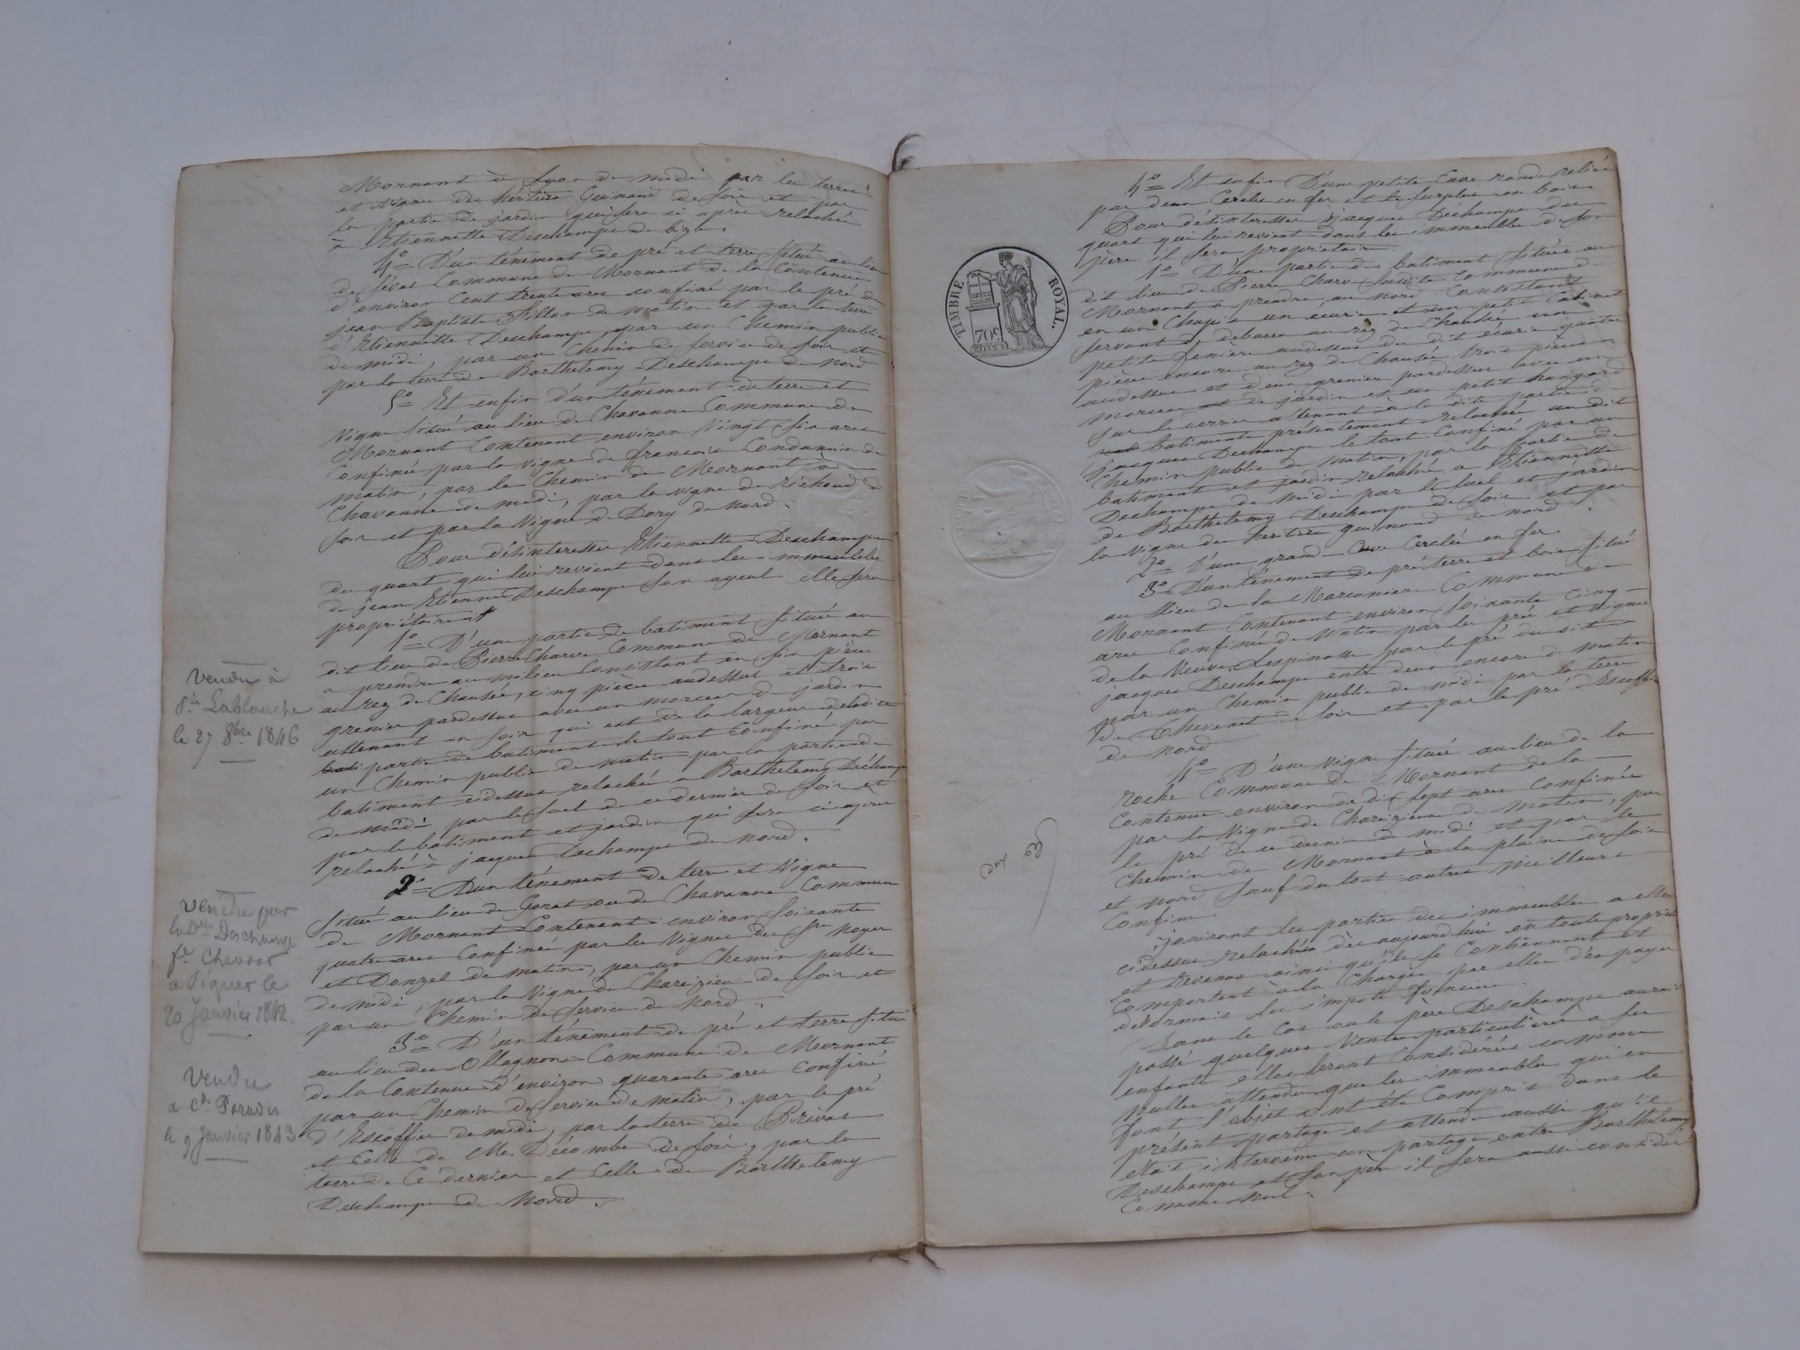 Mornant à Lyon de midi par les terres
et vigne des héritiers Guinand de soir et par
la partie de jardin qui sera ci après relachée
à Etiennette Deschamps de bize.
4° D'un ténement de pré et terre situé au lieu
de Commune de Mornant de la Contenue
d'environ Cent trente ares confiné par le pré de
jean Baptiste de matin et par la terre
d'Etiennette Deschamps, par un Chemin public
de midi, par un Chemin de service de soir et
par la terre de Barthelemy Deschamps de Nord
5° Et enfin d'un ténement de terre et
Vigne situé au lieu de Chavanne Commune de
Mornant Contenant environ Vingt six ares
Confiné par la vigne de francois Condamin de
matin, par le Chemin de Mornant à
Chavanne de midi, par la vigne de Richoud de
soir et par la Vigne de Dory de Nord.
Pour désintéresser Etiennette Deschamps
du quart qui lui revient dans les immeubles
de jean Etienne Deschamps son ayeul elle sera
propriétaire
1° D'une partie de batiment située au
dit lieu de Pierre Charve Commune de Mornant
à prendre au milieu Consistant en six pièces
au rez de Chaussée, cinq pièces audessus et trois
grenier pardessus avec un morceau de jardin
attenant en soir qui est de la largeur de ladite
bati partie de batiment le tout Confiné par
un Chemin public de matin par la partie de
batiment cidessus relaché a Barthelemy Déchamps
de midi par le suel de ce dernier de soir et
par le batiment et jardin qui sera ci après
relaché à jacques Deschamps de nord.
2° D'un ténement de terre et Vigne
situé au lieu de Gorat ou de Chavanne Commune
de Mornant Contenant environ soixante
quatre ares Confiné par les Vignes des Srs Royer
et Danzel de matin, par un Chemin public
de midi, par la Vigne de Chareizieu de soir et
par un Chemin de service de Nord.
3° D'un ténement de pré et terre situé
au lieu des Ollagnons Commune de Mornant
de la Contenue d'environ quarante ares Confiné
par un Chemin de service de matin, par le pré
d'Escoffier de midi, par la terre de Privas
et Celle de Me. Décombe de soir, par la
terre de Ce dernier et Celle de Barthelemy
Deschamps de Nord.
Vendu à
Lablanche
le 27 8bre 1846
Vendu par
la Dlle Deschamps
fe Chevrot
a Piquer le
20 Janvier 1842.
Vendu
a Cde Paradis
le 9 Janvier 1843
4° Et enfin D'une petite Cuve ronde reliée
par deux Cercles en fer et le surplus en bois
Pour désintéresser jacques Dechamps du
quart qui lui revient dans les immeubles de son
père il sera propriétaire
1° D'une partie de batiment située au
dit lieu de Pierre Charve susdite Commune de
Mornant à prendre au nord Consistant
en un Chapis un écurie et un petit Cabinet
servant de debarra au rez de Chaussée une
petite feniere audessus du dit écurie quatre
pièces encore au rez de Chaussée trois pièces
audessus et deux grenier pardessus avec un
morceau de jardin et un petit hangard
sur le derrier attenant à la dite partie de
batiments présentement relachée au dit
Jacques Dechamps le tout Confiné par un
Chemin public de matin, par la partie de
batiment et jardin relaché a Etiennette
Deschamps de midi par le suel et jardin
de Barthelemy Deschamps de soir et par
la Vigne des héritiers guinand de nord.
2° D'une grande Cuve Cerclée en fer
3° D'un ténement de pré terre et bois situé
au lieu de la Marconiere Commune de
Mornant Contenant environ soixante cinq
ares Confiné de Matin par les pré et Vigne
de la Veuve Lespinasse par le pré du dit
jacques Deschamps entre deux encore de matin
par un Chemin public de midi par la terre
de Thevenet de soir et par le pré d'Escoffier
de Nord
4° D'une Vigne située au lieu de la
roche Commune de Mornant de la
Contenue environ de dix sept ares Confinée
par la Vigne de Chareizieu de matin, par
le pré de ce dernier de midi et par le
Chemin de Mornant à la plaine de soir
et nord sauf du tout autres meilleurs
Confins
jouiront les parties des immeubles a elles
cidessus relachés dès aujourd'hui en toute propriété
et Revenus ainsi qu'ils se Contiennent et
Comportent à la Charge par elles d'en payer
désormais les impots foncier.
Dans le Cas ou le père Deschamps aurait
passé quelques Ventes particulières à ses
enfants elles seront Considérées comme
nulles attendu que les immeubles qui en
font l'objet ont été Compris dans le
présent partage et attendu aussi qu'il
était intervenu un partage entre Barthelemy
Deschamps et son père il sera aussi considéré
Comme nul.
TIMBRE ROYAL.
70c